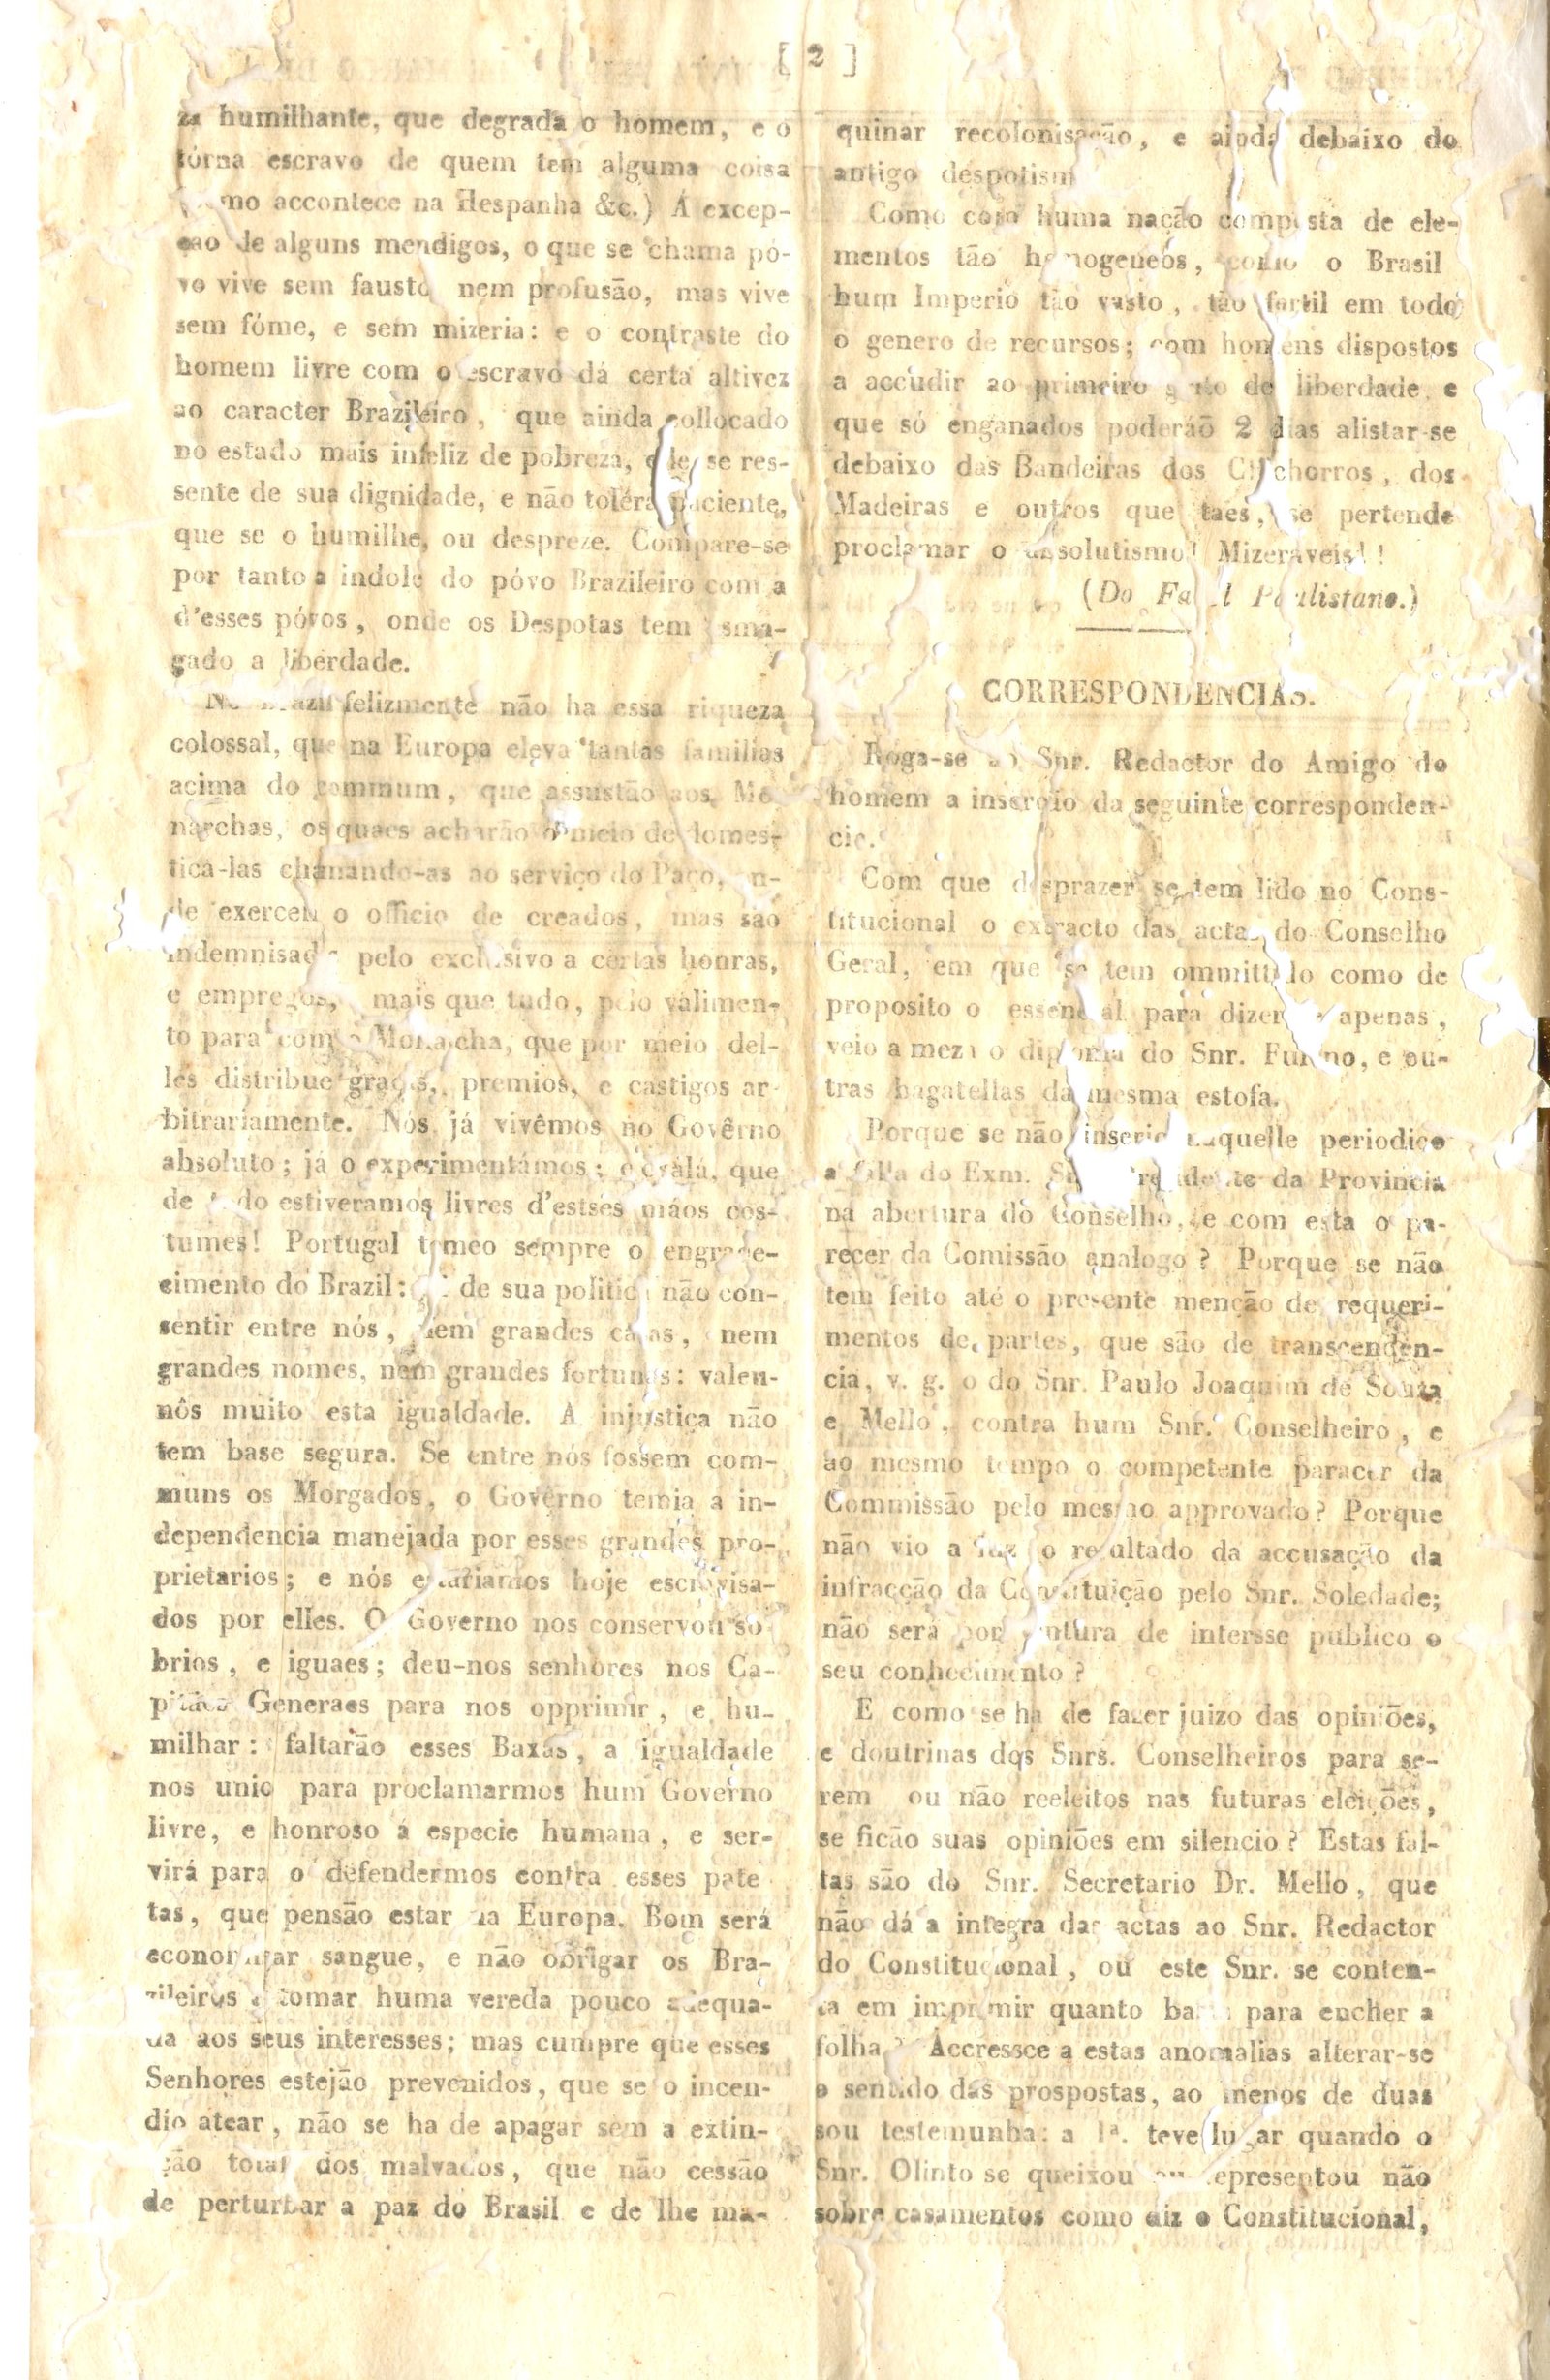 [ 2 ]
za humilhante, que degrada o homem, e o
tórna escravo de quem tem alguma coisa
mo accontece na Hespanha &c.) Á excep-
ção de alguns mendigos, o que se chama pó-
vo vive sem fausto nem profusão, mas vive
sem fóme, e sem mizeria: e o contraste do
homem livre com o escravo dá certa altivez
ao caracter Brazileiro, que ainda collocado
no estado mais infeliz de pobreza, elle se res-
sente de sua dignidade, e não toléra paciente,
que se o humilhe, ou despreze. Compare-se
por tanto a indole do póvo Brazileiro com a
d'esses póvos, onde os Despotas tem esma-
gado a liberdade.
No Brazil felizmente não ha essa riqueza
colossal, que na Europa eleva tantas familias
acima do commum, que assustão aos Mo
narchas, os quaes acharão o meio de domes-
tica-las chamando-as ao serviço do Paço, on-
de exercem o officio de creados, mas são
indemnisados pelo exclusivo a certas honras,
e empregos, mais que tudo, pelo valimen-
to para com o Monarcha, que por meio del-
les distribue graças, premios, e castigos ar
bitrariamente. Nós já vivêmos no Govêrno
absoluto; já o experimentámos; oxalá, que
de todo estiveramos livres d'estses máos cos-
tumes! Portugal temeo sempre o engrade-
cimento do Brazil: de sua politica não con-
sentir entre nós, nem grandes casas, nem
grandes nomes, nem grandes fortunas: valeu-
nôs muito esta igualdade. A injustiça não
tem base segura. Se entre nós fossem com-
muns os Morgados, o Govêrno temia a in-
dependencia manejada por esses grandes pro-
prietarios; e nós estariamos hoje escravisa-
dos por elles. O Governo nos conservou so
brios, e iguaes; deu-nos senhores nos Ca-
pitães Generaes para nos opprimir, e hu-
milhar: faltarão esses Baxas, a igualdade
nos unio para proclamarmos hum Governo
livre, e honroso á especie humana, e ser-
virá para o defendermos contra esses pate
tas, que pensão estar na Europa. Bom será
economisar sangue, e não obrigar os Bra-
zileiros a tomar huma vereda pouco adequa-
da aos seus interesses; mas cumpre que esses
Senhores estejão prevenidos, que se o incen-
dio atear, não se ha de apagar sem a extin-
ção total dos malvados, que não cessão
de perturbar a paz do Brasil e de lhe ma-
quinar recolonisação, e ainda debaixo do
antigo despotism
Como com huma nação composta de ele-
mentos tão homogeneos, como o Brasil
hum Imperio tão vasto, tão fertil em todo
o genero de recursos; com homens dispostos
a accudir ao primeiro grito de liberdade, e
que só enganados poderáõ 2 dias alistar-se
debaixo das Bandeiras dos Cachorros, dos
Madeiras e outros que taes, se pertende
proclamar o absolutismo! Mizeraveis!!
(Do Farol Paulistano.)
CORRESPONDENCIAS.
Roga-se ao Snr. Redactor do Amigo do
homem a inserção da seguinte corresponden-
cia.
Com que desprazer se tem lido no Cons-
titucional o extracto das actas do Conselho
Geral, em que se tem ommittido como de
proposito o essencial para dizer apenas,
veio a meza o diploma do Snr. e ou-
tras bagatellas da mesma estofa.
Porque se não inserio naquelle periodico
a falla do Exm. Snr. Presidente da Provincia
na abertura do Conselho, e com esta o pa-
recer da Comissão analogo? Porque se não
tem feito até o presente menção de requeri-
mentos de partes, que são de transcenden-
cia, v. g. o do Snr. Paulo Joaquim de Souza
e Mello, contra hum Snr. Conselheiro, e
ao mesmo tempo o competente paracer da
Commissão pelo mesmo approvado? Porque
não vio a luz o resultado da accusação da
infracção da Constituição pelo Snr. Soledade;
não será por ventura de intersse publico o
seu conhecimento?
E como se ha de fazer juizo das opiniões,
e doutrinas dos Snrs. Conselheiros para se-
rem ou não reeleitos nas futuras eleições,
se ficão suas opiniões em silencio? Estas fal-
tas são do Snr. Secretario Dr. Mello, que
não dá a integra das actas ao Snr. Redactor
do Constitucional, ou este Snr. se conten-
ta em imprimir quanto basta para encher a
folha? Accressce a estas anomalias alterar-se
o sentido das prospostas, ao menos de duas
sou testemunha: a 1ª. teve lugar quando o
Snr. Olinto se queixou ou representou não
sobre casamentos como diz o Constitucional,